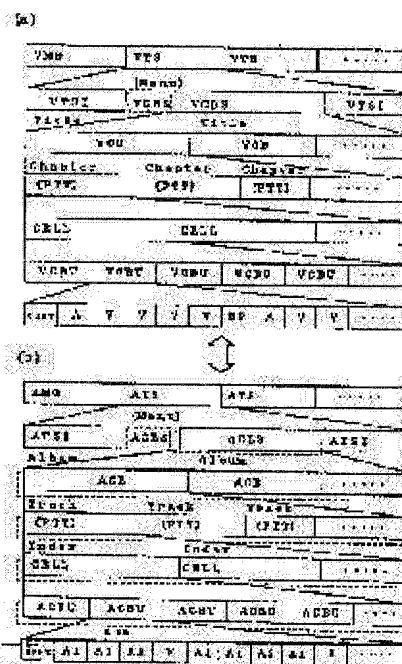 (a)
VMG VTS VTS .....
(Menu)
VTSI VOBS VOBS VTSI
Title Title
VOB VOB .....
Chapter Chapter Chapter
(PTT) (PTT) (PTT) .....
CELL CELL .....
VOBU VOBU VOBU VOBU VOBU ....
A V V V V SP A V V ....
(b)
AMG ATS ATS .....
(Menu)
ATSI AOBS AOBS ATSI
Album Album
AOB AOB .....
Track Track Track
(PTT) (PTT) (PTT) .....
Index Index
CELL CELL .....
AOBU AOBU AOBU AOBU AOBU ....